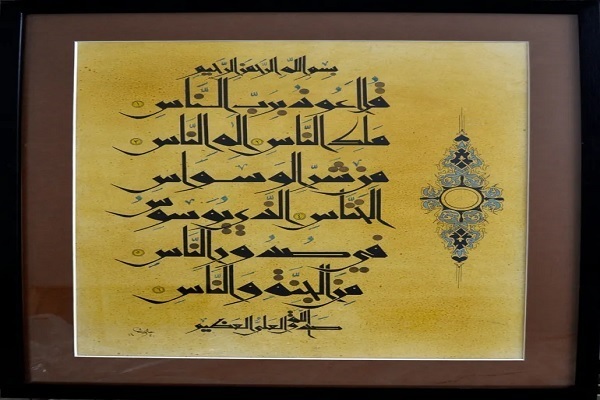 بسم الله الرحمن الرحيم
قل أعوذ برب الناس
ملك الناس إله الناس
من شر الوسواس
الخناس الذي يوسوس
في صدور الناس
من الجنة والناس
صدق الله العلي العظيم